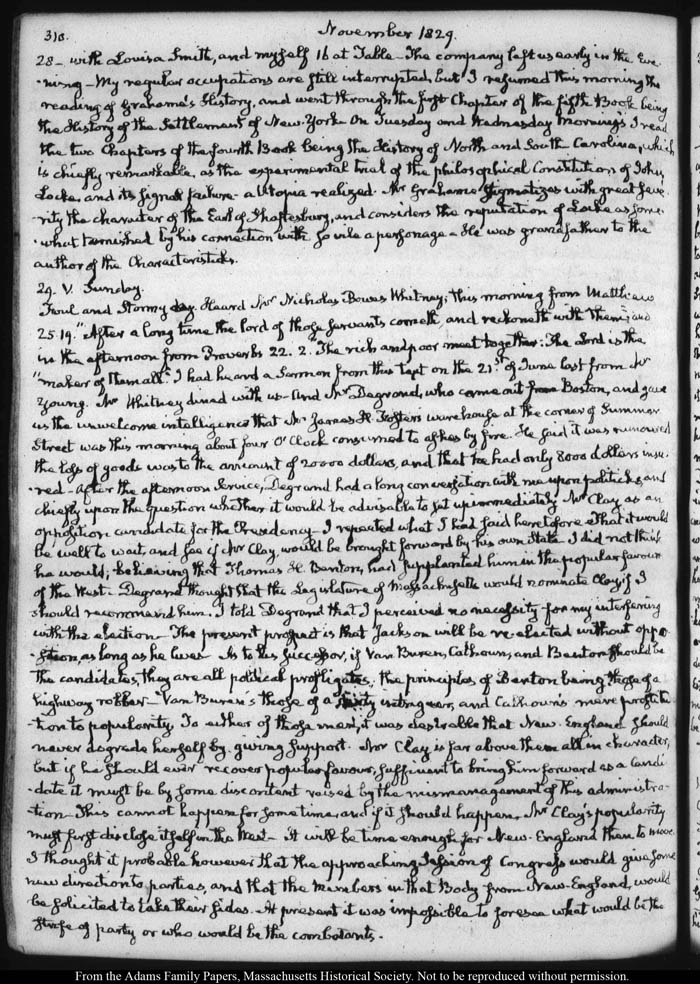 310.
November 1829.
28 – with Louisa Smith, and myself 16 at Table – The company left us early in the Eve-
-ning – My regular occupations are still interrupted, but I resumed this morning the
reading of Grahame's History, and went through the first Chapter of the fifth Book being
the History of the Settlement of New-York. On Tuesday and Wednesday Mornings I read
the two Chapters of the fourth Book being the History of North and South Carolina, which
is chiefly remarkable, as the experimental trial of the philosophical Constitution of John
Locke, and its signal failure – a Utopia realized – Mr Grahame stigmatizes with great seve-
-rity, the character of the Earl of Shaftesbury, and considers the reputation of Locke as some-
-what tarnished by his connection with so vile a personage – He was grandfather to the
author of the Characteristicks.
29. V. Sunday.
Foul and Stormy day. Heard Mr Nicholas Bowes Whitney; this morning from Matthew
25.19. "After a long time the lord of those servants cometh, and reckoneth with them", and
in the afternoon from Proverbs 22. 2. "The rich and poor meet together: The Lord is the
"maker of them all." I had heard a Sermon from this text on the 21st of June last from Mr
Young. Mr Whitney dined with us – and Mr Degrand, who came out from Boston, and gave
us the unwelcome intelligence that Mr James H. Foster's warehouse at the corner of Summer
Street was this morning about four O'Clock consumed to ashes by fire. He said it was rumoured
the loss of goods was to the amount of 20000 dollars, and that he had only 8000 dollars insu-
-red – After the afternoon Service, Degrand had a long conversation with me upon politicks, and
chiefly upon the question whether it would be advisable to set up immediately Mr Clay as an
opposition candidate for the Presidency – I repeated what I had said heretofore – That it would
be well to wait and see if Mr Clay would be brought forward by his own State – I did not think
he would; believing that Thomas H. Benton, had supplanted him in the popular favour
of the West – Degrand thought that the Legislature of Massachusetts would nominate Clay, if I
should recommend him. I told Degrand that I perceived no necessity for my interfering
with the election – The present prospect is that Jackson will be re-elected without oppo-
-sition, as long as he lives – As to his successor, if Van Buren, Calhoun, and Benton should be
the candidates, they are all political profligates; the principles of Benton being those of a
highway robber – Van Buren's those of a intriguer, and Calhoun's mere prostitu-
-tion to popularity. To either of those men, it was desirable that New-England should
never degrade herself by giving support. Mr Clay is far above them all in character,
but if he should ever recover popular favour, sufficient to bring him forward as a candi-
-date it must be by some discontent raised by the mismanagement of this administra-
-tion – This cannot happen for some time, and if it should happen, Mr Clay's popularity
must first disclose itself in the West – It will be time enough for New-England then to move.
I thought it probable however that the approaching Session of Congress would give some
new direction to parties, and that the members in that Body from New-England, would
be solicited to take their sides. At present it was impossible to foresee what would be the
strife of party or who would be the combatants.
From the Adams Family Papers, Massachusetts Historical Society. Not to be reproduced without permission.